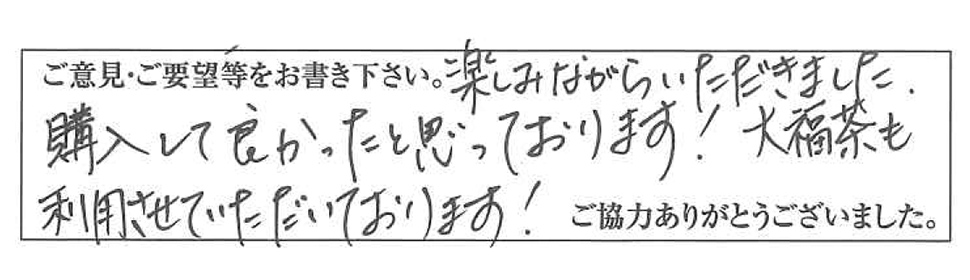 ご意見・ご要望等をお書き下さい。楽しみながらいただきました.
購入して良かったと思っております! 大福茶も
利用させていただいております! ご協力ありがとうございました。